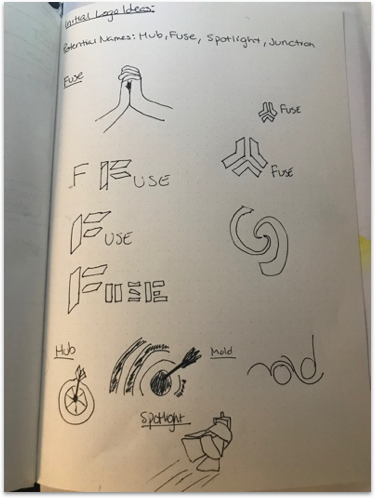 Initial Logo Ideas:
Potential Names: Hub, Fuse, Spotlight, Junction
Fuse
FUSE
F FUSE
FUSE
FUSE
FUSE
Hub
Mold
Spotlight